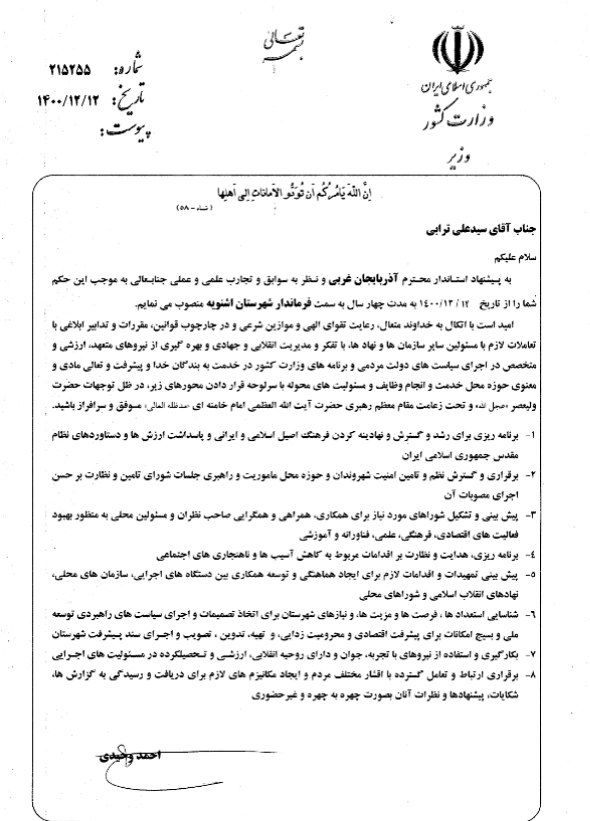 بسمه تعالی
جمهوری اسلامی ایران
وزارت کشور
وزیر
شماره: ۲۱۵۲۵۵
تاریخ: ۱۴۰۰/۱۲/۱۲
پیوست:
اِنَّ اللهَ یَامُرُکُم اَن تُوَدُّو الاَماناتِ اِلی اَهلِها
(نساء - ۵۸)
جناب آقای سیدعلی ترابی
سلام علیکم
به پیشنهاد استاندار محترم آذربایجان غربی و نظر به سوابق و تجارب علمی و عملی جنابعالی به موجب این حکم
شما را از تاریخ ۱۴۰۰/۱۲/۱۲ به مدت چهار سال به سمت فرماندار شهرستان اشنویه منصوب می نمایم.
امید است با اتکال به خداوند متعال، رعایت تقوای الهی و موازین شرعی و در چارچوب قوانین، مقررات و تدابیر ابلاغی با
تعاملات لازم با مسئولین سایر سازمان ها و نهاد ها، با تفکر و مدیریت انقلابی و جهادی و بهره گیری از نیروهای متعهد، ارزشی و
متخصص در اجرای سیاست های دولت مردمی و برنامه های وزارت کشور در خدمت به بندگان خدا و پیشرفت و تعالی مادی و
معنوی حوزه محل خدمت و انجام وظایف و مسئولیت های محوله با سرلوحه قرار دادن محورهای زیر، در ظل توجهات حضرت
ولیعصر «عجل الله» و تحت زعامت مقام معظم رهبری حضرت آیت الله العظمی امام خامنه ای «مدظله العالی» موفق و سرافراز باشید.
۱- برنامه ریزی برای رشد و گسترش و نهادینه کردن فرهنگ اصیل اسلامی و ایرانی و پاسداشت ارزش ها و دستاوردهای نظام
مقدس جمهوری اسلامی ایران
۲- برقراری و گسترش نظم و تامین امنیت شهروندان و حوزه محل ماموریت و راهبری جلسات شورای تامین و نظارت بر حسن
اجرای مصوبات آن
۳- پیش بینی و تشکیل شوراهای مورد نیاز برای همکاری، همراهی و همگرایی صاحب نظران و مسئولین محلی به منظور بهبود
فعالیت های اقتصادی، فرهنگی، علمی، فناورانه و آموزشی
۴- برنامه ریزی، هدایت و نظارت بر اقدامات مربوط به کاهش آسیب ها و ناهنجاری های اجتماعی
۵- پیش بینی تمهیدات و اقدامات لازم برای ایجاد هماهنگی و توسعه همکاری بین دستگاه های اجرایی، سازمان های محلی،
نهادهای انقلاب اسلامی و شوراهای محلی
۶- شناسایی استعداد ها ، فرصت ها و مزیت ها، و نیازهای شهرستان برای اتخاذ تصمیمات و اجرای سیاست های راهبردی توسعه
ملی و بسیج امکانات برای پیشرفت اقتصادی و محرومیت زدایی، و تهیه، تدوین ، تصویب و اجرای سند پیشرفت شهرستان
۷- بکارگیری و استفاده از نیروهای با تجربه، جوان و دارای روحیه انقلابی، ارزشی و تحصیلکرده در مسئولیت های اجرایی
۸- برقراری ارتباط و تعامل گسترده با اقشار مختلف مردم و ایجاد مکانیزم های لازم برای دریافت و رسیدگی به گزارش ها،
شکایات، پیشنهادها و نظرات آنان بصورت چهره به چهره و غیرحضوری
احمد وحیدی